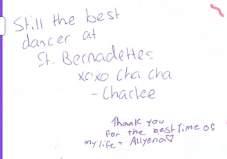 Still the best
dancer at
St. Bernadettes
xoxo cha cha
- Charlee
Thank you
for the best time of
my life - Aliyena♡